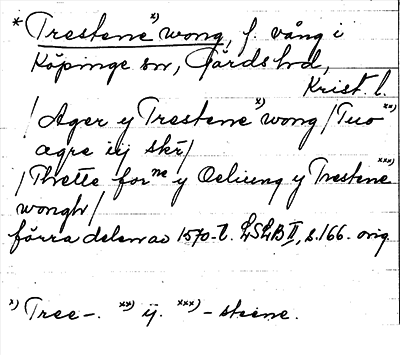 * Trestene x) wong, f. vång i
Köpinge sn, Gärds hd,
Krist. l.
/ Ager y Trestene x) wong / Tuo xx)
agre iij skr /
/ Thrette for ne y Oeliung y Trestene xxx)
wongh /
förra delen av 1570-t. LSLB II, s. 166. orig.
x) Tree-. xx) ij. xxx) -steene.